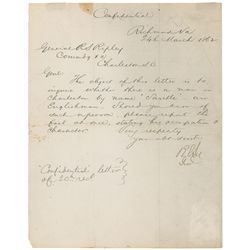 Confidential
Richmond Va
24th March 1862
General R S Ripley
Comndg &c
Charleston S C
Genl
The object of this letter is to
inquire whether there is a man in
Charleston by name " an
Englishman. Should you know of
such a person please report the
fact at once, stating his occupation &
character.
Very respectfy
your obt servt
R E Lee
Gl
"Confidential" letter
of 20th recd